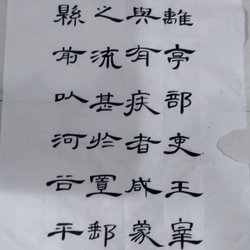 離亭部吏王皋
與有疾者咸蒙
之流甚於置郵
縣前以河谷平